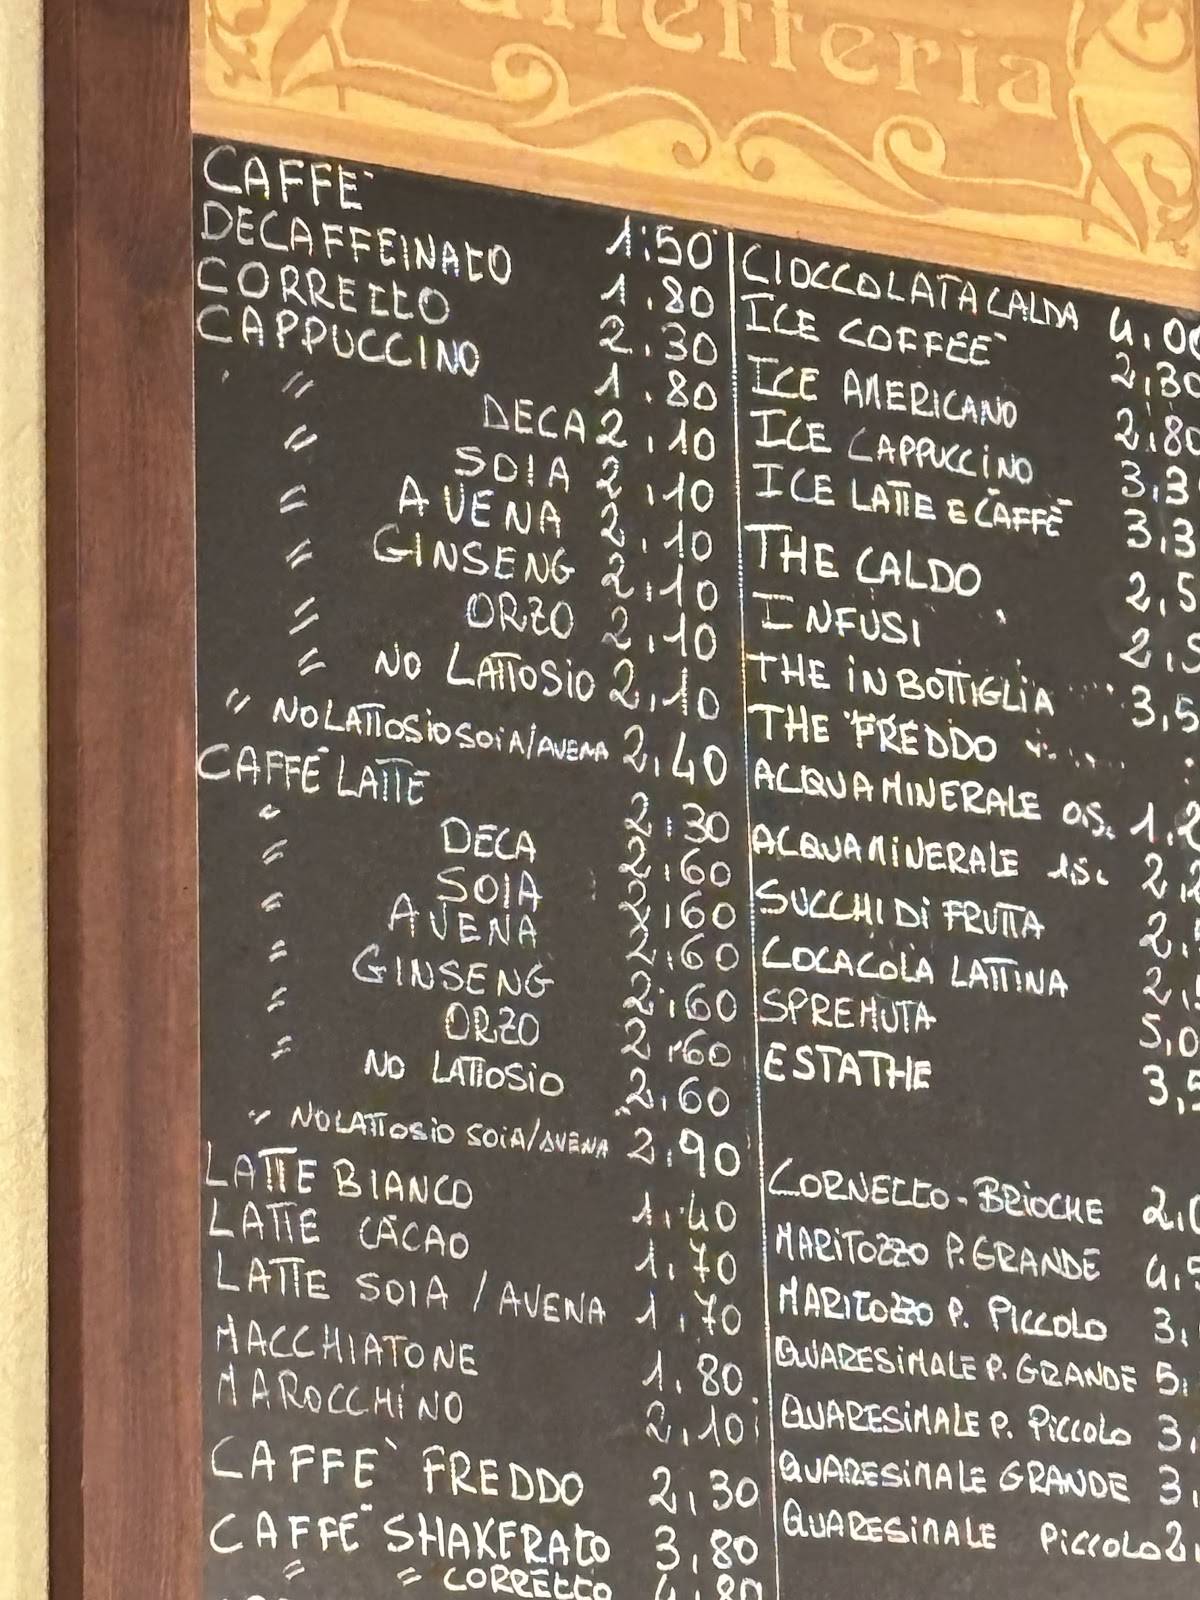 CAFFE` 1.50
DECAFFEINATO 1.80
CORRETTO 2.30
CAPPUCCINO 1.80
" DECA 2,10
" SOIA 2,10
" AVENA 2,10
" GINSENG 2,10
" ORZO 2,10
" NO LATTOSIO 2,10
" NO LATTOSIO SOIA/AVENA 2,40
CAFFE` LATTE 2.30
" DECA 2.60
" SOIA 2,60
" AVENA 2.60
" GINSENG 2.60
" ORZO 2.60
" NO LATTOSIO 2.60
" NO LATTOSIO SOIA/AVENA 2.90
LATTE BIANCO 1.40
LATTE CACAO 1.70
LATTE SOIA / AVENA 1.70
MACCHIATONE 1.80
MAROCCHINO 2,10
CAFFE` FREDDO 2,30
CAFFE` SHAKERATO 3,80
" " CORRETTO 4,80
CIOCCOLATA CALDA 4,00
ICE COFFEE` 2,30
ICE AMERICANO 2,80
ICE CAPPUCCINO 3,3
ICE LATTE E CAFFE` 3,3
THE CALDO 2,5
INFUSI 2,5
THE IN BOTTIGLIA 3,5
THE FREDDO
ACQUA MINERALE 0.5. 1,2
ACQUA MINERALE 1.5. 2,2
SUCCHI DI FRUTTA 2,
COCACOLA LATTINA 2,
SPREMUTA 5,0
ESTATHE 3,5
CORNETTO - BRIOCHE 2,0
MARITOZZO P. GRANDE 4,5
MARITOZZO P. PICCOLO 3,
QUARESIMALE P. GRANDE 5,
QUARESIMALE P. PICCOLO 3,
QUARESIMALE GRANDE 3,
QUARESIMALE PICCOLO 2,